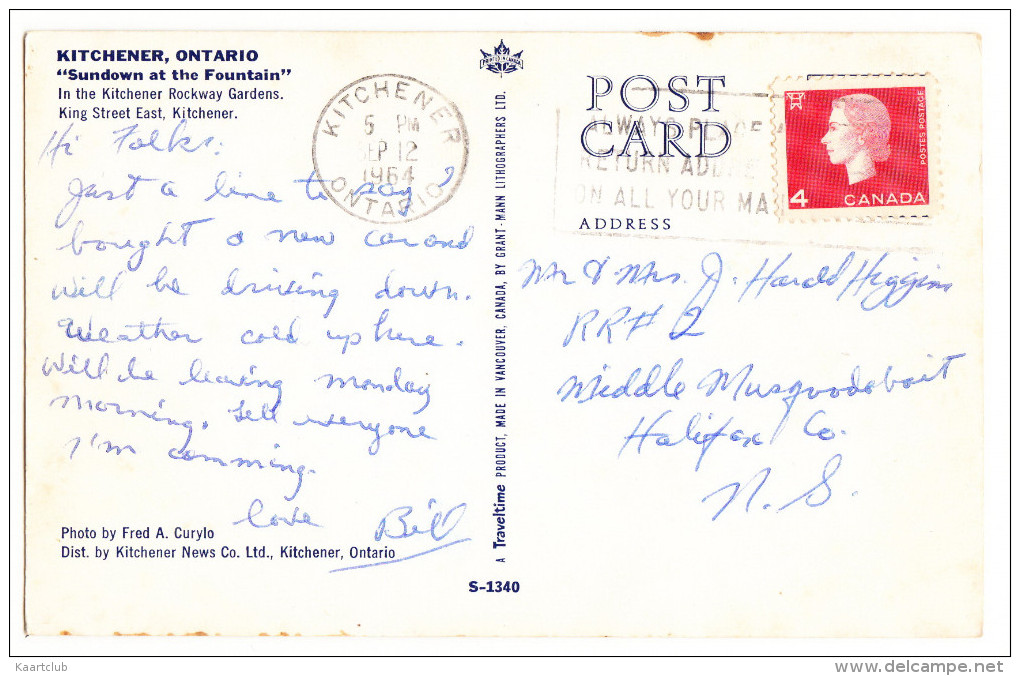 KITCHENER, ONTARIO
"Sundown at the Fountain"
In the Kitchener Rockway Gardens.
King Street East, Kitchener.
Hi Folks:
Just a line to say I
bought a new car and
will be driving down.
Weather cold up here.
Will be leaving monday
morning. tell everyone
I'm comming.
love Bill
Photo by Fred A. Curylo
Dist. by Kitchener News Co. Ltd., Kitchener, Ontario
KITCHENER
5 PM
SEP 12
1964
ONTARIO
PRINTED IN CANADA
A Traveltime PRODUCT, MADE IN VANCOUVER, CANADA, BY GRANT-MANN LITHOGRAPHERS LTD.
S-1340
POST
CARD
ADDRESS
ALWAYS PLACE
RETURN ADDRE
ON ALL YOUR MA
4 CANADA
POSTES POSTAGE
Mr & Mrs. J. Harold Higgins
RR# 2
Middle Musquodoboit
Halifax Co.
N. S.
Kaartclub
www.delcampe.net